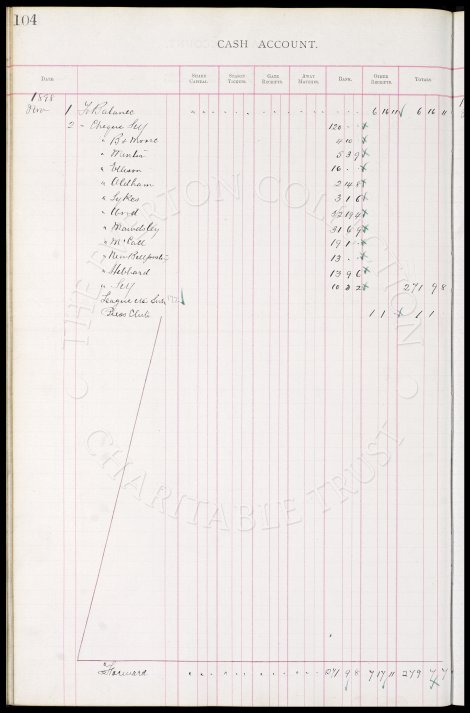 104
CASH ACCOUNT.
DATE
SHARE CAPITAL.
SEASON TICKETS.
GATE RECEIPTS.
AWAY MATCHES.
BANK.
OTHER RECEIPTS.
TOTALS
1898
Nov 1 To Balance 6 16 11 6 16 11
2 - Cheque Self 120 - -
" B & Moore 4 10
" Martin 5 3 9
" Ellison 16 - -
" Oldham 2 14 8
" Sykes 3 1 6
" Wood 32 19 4
" Mawdsley 31 6 9
" McCall 19 1 -
" New Bellfoundry 13 - -
" Stebbard 13 9 6
" Self 10 3 2 271 9 8
League
Press Club 1 1 - 1 1
Forward 271 9 8 7 17 11 279 7 7
THE EVERTON COLLECTION
CHARITABLE TRUST